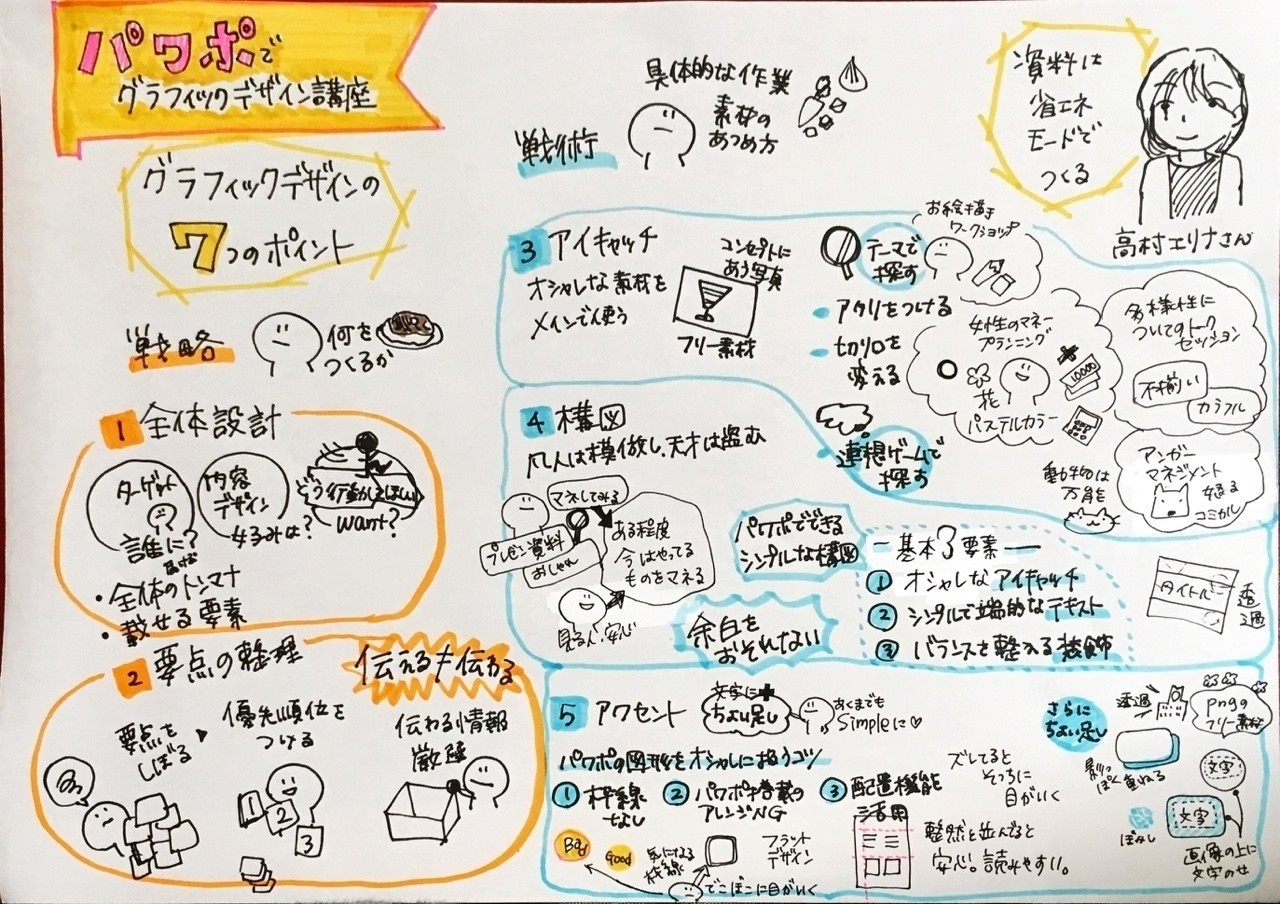 パワポで
グラフィックデザイン講座
グラフィックデザインの
7つのポイント
戦略
何を
つくるか
1 全体設計
ターゲット
誰に?
内容
デザイン
好みは?
どう行動してほしい
want?
・全体のトンマナ
・載せる要素
2 要点の整理
伝える≠伝わる
要点を
しぼる
優先順位を
つける
伝わる情報
厳選
1
2
3
戦術
具体的な作業
素材の
あつめ方
資料は
省エネ
モードで
つくる
高村エリナさん
3 アイキャッチ
オシャレな素材を
メインで使う
コンセプトに
あう写真
フリー素材
テーマで
探す
アタリをつける
切り口を
変える
連想ゲームで
探す
お絵描き
ワークショップ
女性のマネー
プランニング
花
10000
パステルカラー
多様性に
ついてのトーク
セッション
不揃い
カラフル
アンガー
マネジメント
怒る
コミカル
動物は
万能
4 構図
凡人は模倣し、天才は盗む
マネしてみる
プレゼン資料
おしゃれ
ある程度
今はやってる
ものをマネる
見る人、安心
パワポでできる
シンプルな構図
余白を
おそれない
基本3要素
① オシャレなアイキャッチ
② シンプルで端的なテキスト
③ バランスを整える装飾
タイトル
透過
5 アクセント
文字に+
ちょい足し
あくまでも
Simpleに♡
パワポの図形をオシャレに扱うコツ
① 枠線
なし
② パワポ搭載の
アレンジNG
③ 配置機能
活用
Bad
Good
気になる
枠線
フラット
デザイン
でこぼこに目がいく
ズレてると
そっちに
目がいく
整然と並んでると
安心。読みやすい。
さらに
ちょい足し
透過
pngの
フリー素材
影っ
ぽく重ねる
文字
ぼかし
文字
画像の上に
文字のせ